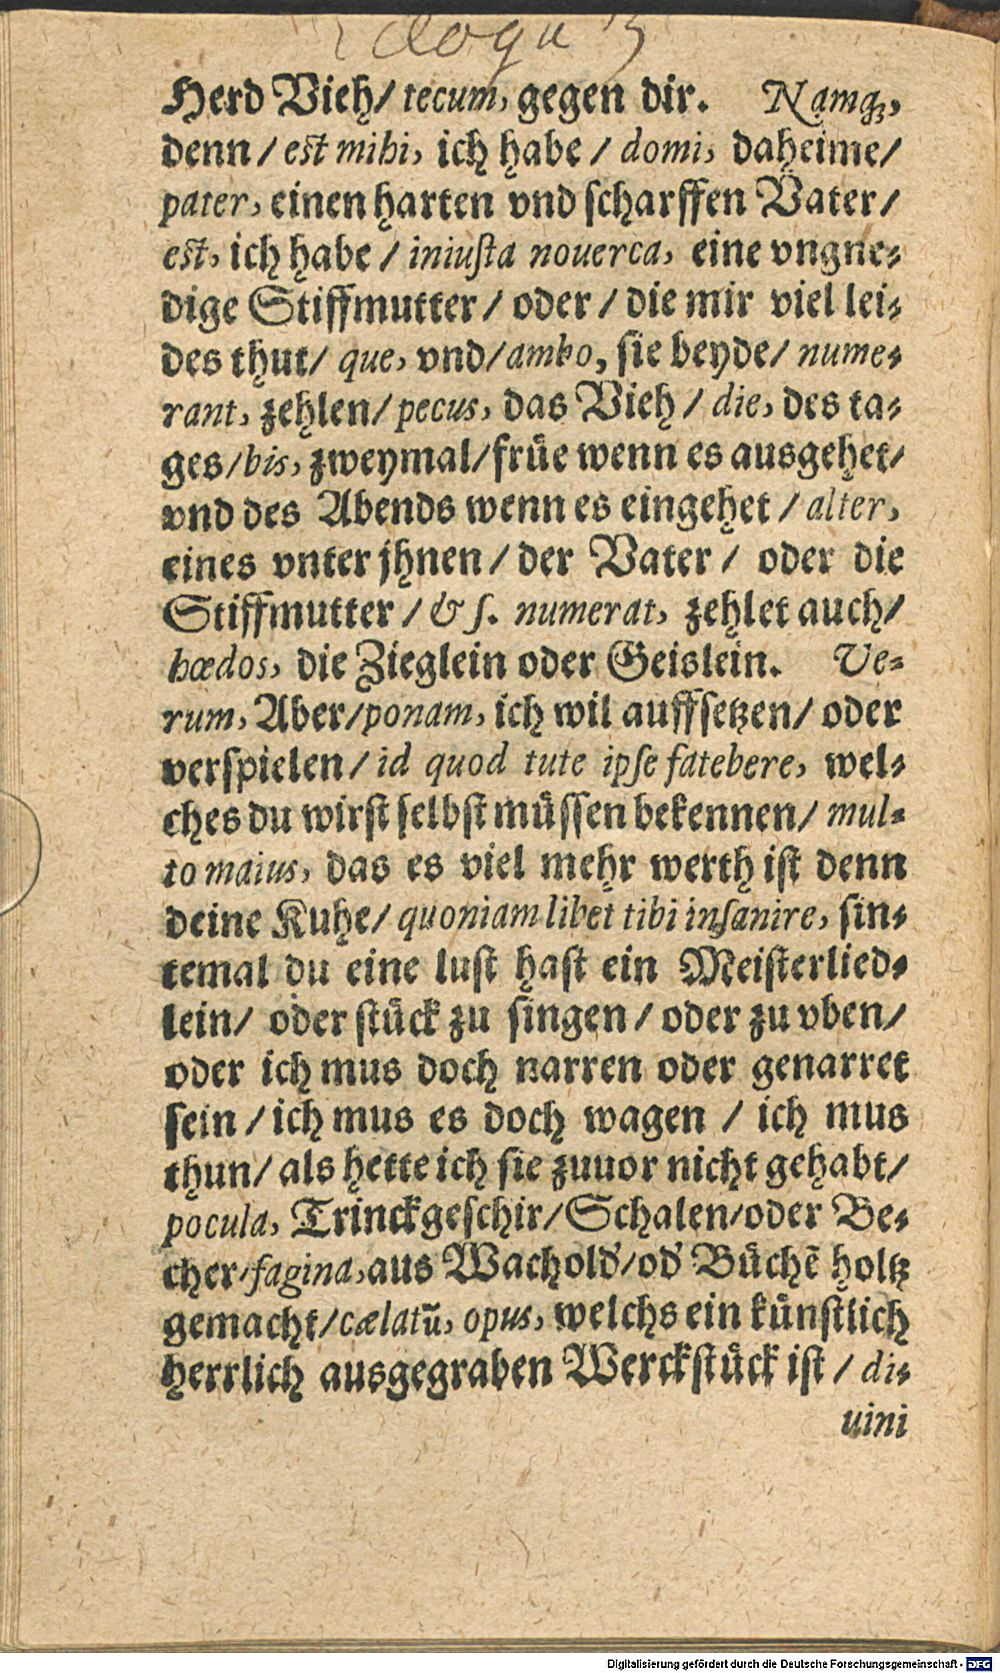 Eclogu 3
Herd Vieh/ tecum, gegen dir. Namq́;,
denn / est mihi, ich habe / domi, daheime/
pater, einen harten vnd scharffen Vater/
est, ich habe / iniusta nouerca, eine vngne-
dige Stiffmutter/ oder / die mir viel lei-
des thut/ que, vnd/ambo, sie beyde/ nume-
rant, zehlen/ pecus, das Vieh / die, des ta-
ges/bis, zweymal/früe wenn es ausgehet/
vnd des Abends wenn es eingehet / alter,
eines vnter jhnen / der Vater / oder die
Stiffmutter / & s. numerat, zehlet auch/
hœdos, die Zieglein oder Geislein. Ve-
rum, Aber/ponam, ich wil auffsetzen/ oder
verspielen / id quod tute ipse fatebere, wel-
ches du wirst selbst müssen bekennen/ mul-
to maius, das es viel mehr werth ist denn
deine Kuhe/ quoniam libet tibi insanire, sin-
temal du eine lust hast ein Meisterlied-
lein/ oder stück zu singen / oder zu vben/
oder ich mus doch narren oder genarret
sein / ich mus es doch wagen / ich mus
thun/ als hette ich sie zuuor nicht gehabt/
pocula, Trinckgeschir/ Schalen/oder Be-
cher/fagina, aus Wachold'/od' Büchē holtz
gemacht/cælatū, opus, welchs ein künstlich
herrlich ausgegraben Werckstück ist / di-
uini
Digitalisierung gefördert durch die Deutsche Forschungsgemeinschaft - DFG